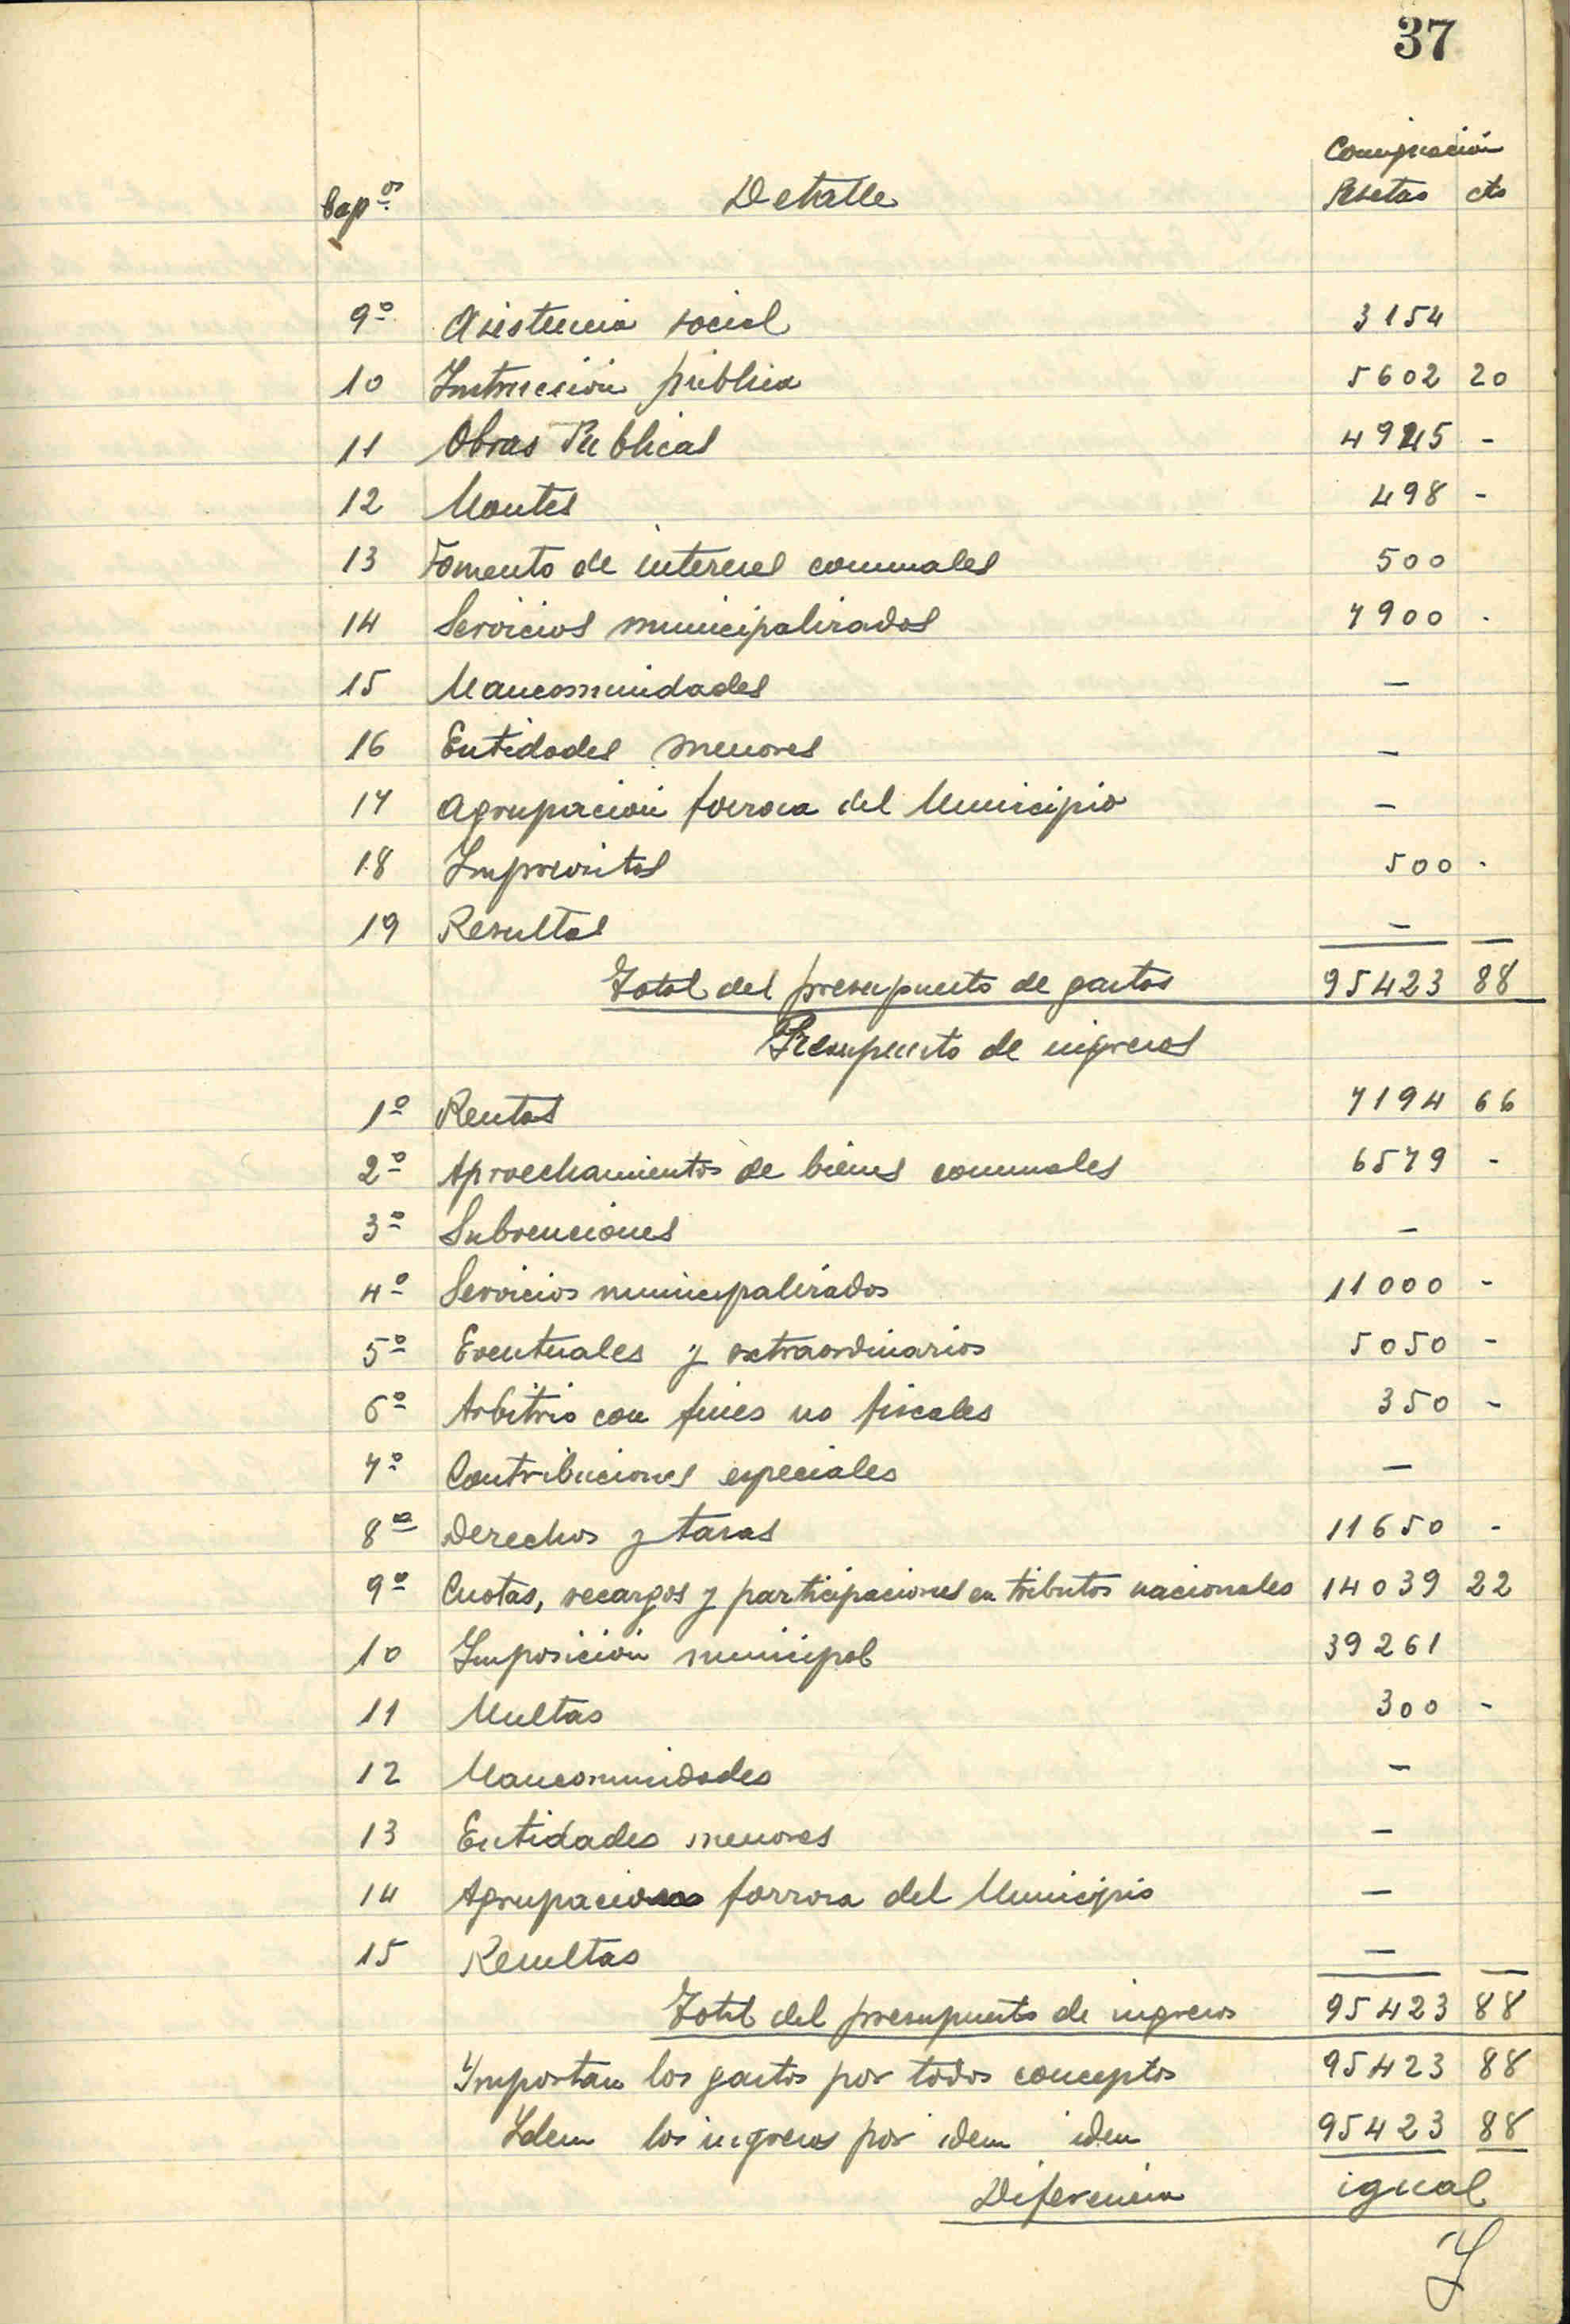 37
Consignación
Cap.os Detalle Pesetas cts
9º Asistencia social 3154
10 Instrucción pública 5602 20
11 Obras Publicas 4945 -
12 Montes 498 -
13 Fomento de intereses comunales 500
14 Servicios municipalizados 7900 -
15 Mancomunidades —
16 Entidades menores —
17 Agrupación forzosa del Municipio —
18 Imprevistos 500 -
19 Resultas —
Total del presupuesto de gastos 95423 88
Presupuesto de ingresos
1º Rentas 7194 66
2º Aproechamientos de bienes comunales 6579 -
3º Subvenciones —
4º Servicios municipalizados 11000 -
5º Eventuales y extraordinarios 5050 -
6º Arbitrio con fines no fiscales 350 -
7º Contribuciones especiales —
8º Derechos y tasas 11650 -
9º Cuotas, recargos y participaciones en tributos nacionales 14039 22
10 Imposición municipal 39261
11 Multas 300 -
12 Mancomunidades —
13 Entidades menores —
14 Agrupacion forzosa del Municipio —
15 Resultas —
Total del presupuesto de ingresos 95423 88
Importan los gastos por todos conceptos 95423 88
Idem los ingresos por idem idem 95423 88
Diferencia igual